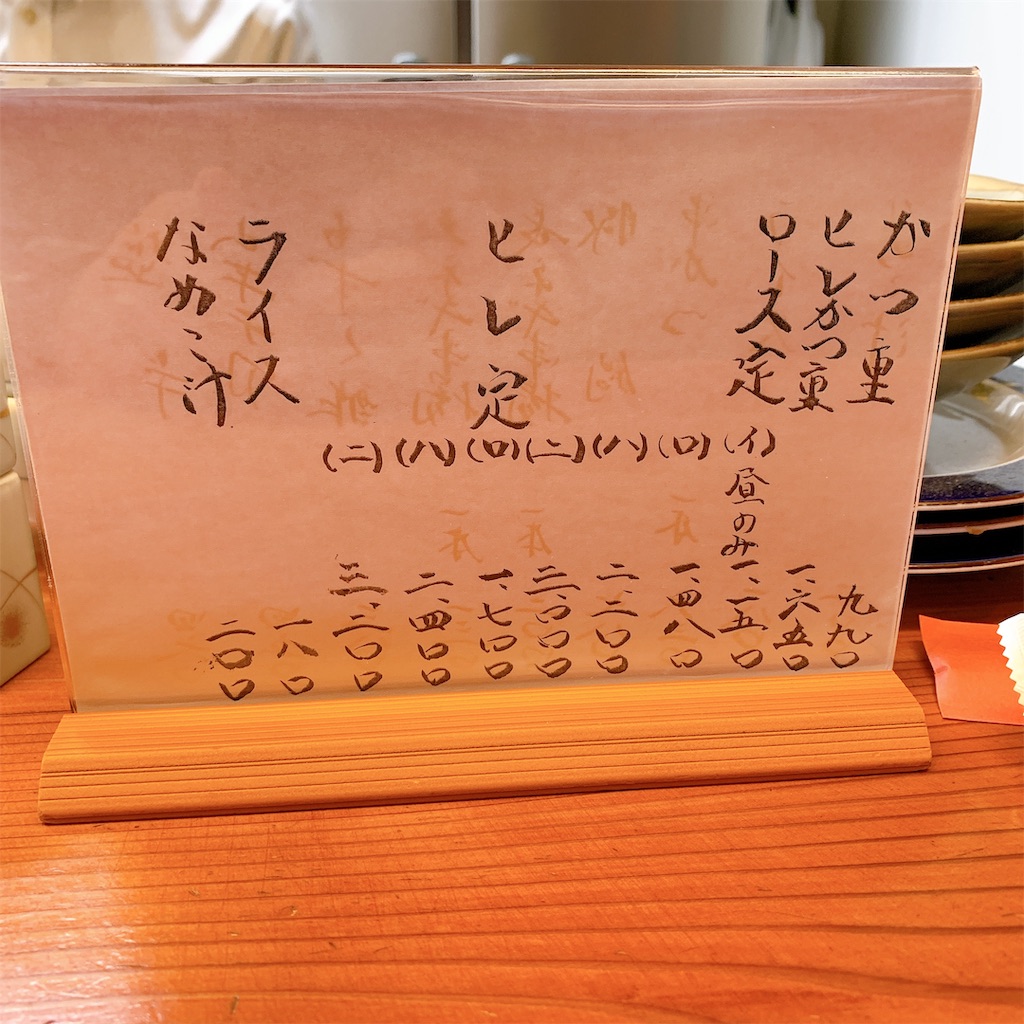 かつ重 九九〇
ヒレかつ重 一、六五〇
ロース定 (イ)昼のみ 一、一五〇
(ロ) 一、四八〇
(ハ) 二、二〇〇
(ニ) 三、〇〇〇
ヒレ定 (ロ) 一、七〇〇
(ハ) 二、四〇〇
(ニ) 三、二〇〇
ライス 一八〇
なめこ汁 二〇〇